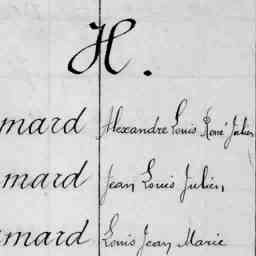 H.
mard Alexandre Louis René Julien
mard Jean Louis Julien,
mard Louis Jean Marie